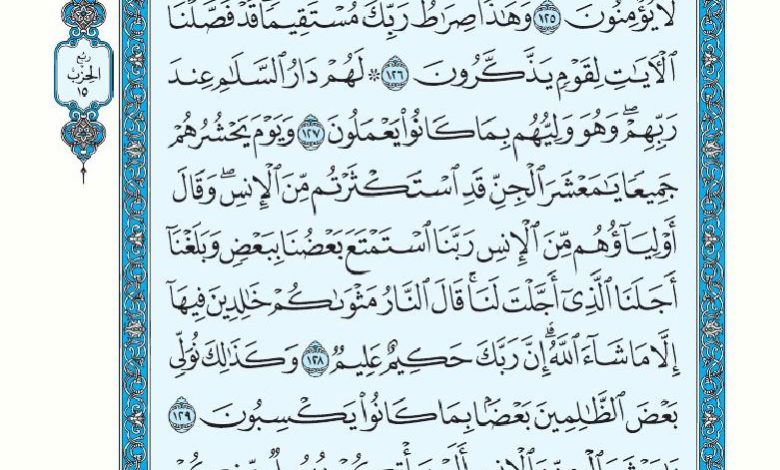 لَا يُؤْمِنُونَ ١٢٥ وَهَٰذَا صِرَاطُ رَبِّكَ مُسْتَقِيمًا قَدْ فَصَّلْنَا
ٱلْآيَٰتِ لِقَوْمٍ يَذَّكَّرُونَ ١٢٦ ۞ لَهُمْ دَارُ ٱلسَّلَٰمِ عِندَ
رَبِّهِمْ ۖ وَهُوَ وَلِيُّهُم بِمَا كَانُوا۟ يَعْمَلُونَ ١٢٧ وَيَوْمَ يَحْشُرُهُمْ
جَمِيعًا يَٰمَعْشَرَ ٱلْجِنِّ قَدِ ٱسْتَكْثَرْتُم مِّنَ ٱلْإِنسِ ۖ وَقَالَ
أَوْلِيَآؤُهُم مِّنَ ٱلْإِنسِ رَبَّنَا ٱسْتَمْتَعَ بَعْضُنَا بِبَعْضٍ وَبَلَغْنَآ
أَجَلَنَا ٱلَّذِىٓ أَجَّلْتَ لَنَا ۚ قَالَ ٱلنَّارُ مَثْوَىٰكُمْ خَٰلِدِينَ فِيهَآ
إِلَّا مَا شَآءَ ٱللَّهُ ۗ إِنَّ رَبَّكَ حَكِيمٌ عَلِيمٌ ١٢٨ وَكَذَٰلِكَ نُوَلِّى
بَعْضَ ٱلظَّٰلِمِينَ بَعْضًۢا بِمَا كَانُوا۟ يَكْسِبُونَ ١٢٩
ربع
الحزب
١٥